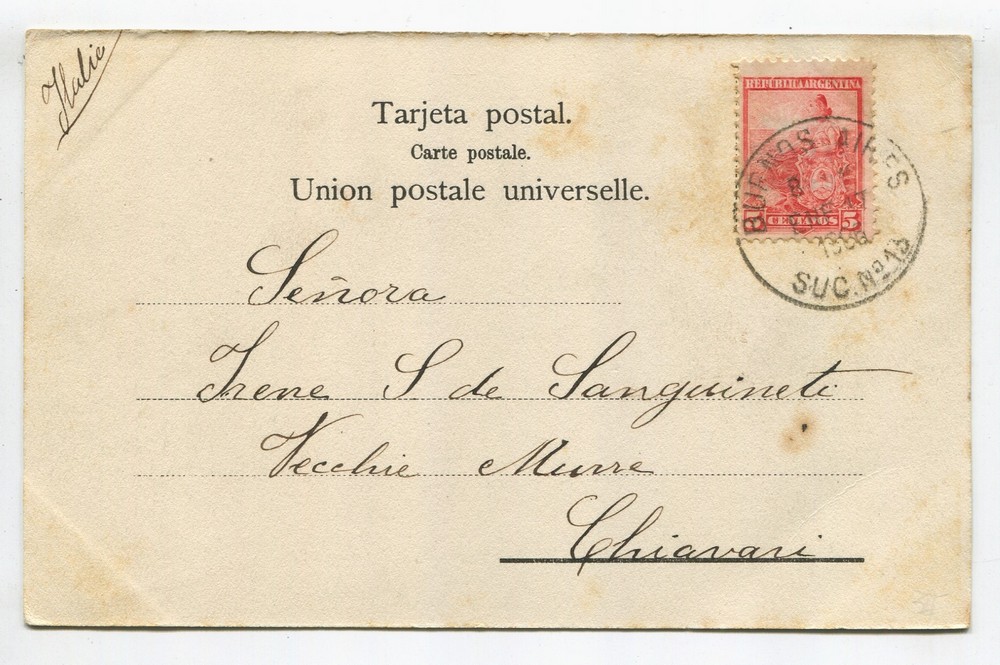 Italie
Tarjeta postal.
Carte postale.
Union postale universelle.
REPÚBLICA ARGENTINA
5 CENTAVOS 5
BUENOS AIRES
SUC. No 13
Señora
Irene S de Sanguineti
Vecchie Murre
Chiavari